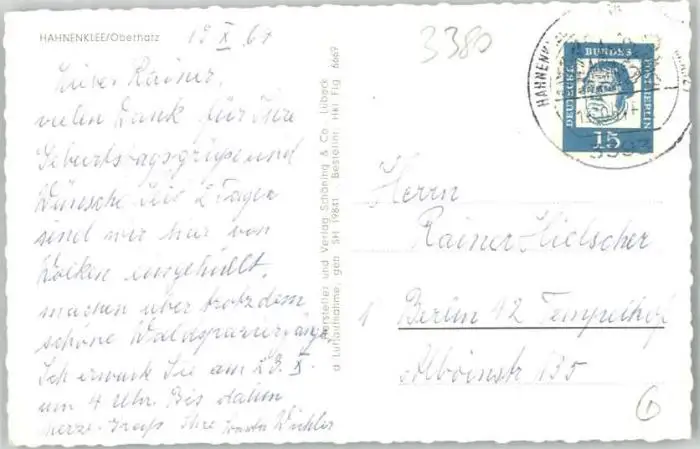 HAHNENKLEE/Oberharz
19 X 61
Lieber Rainer,
vielen Dank für Ihre
Geburtstagsgrüße und
Wünsche. Seit 2 Tagen
sind wir hier von
Wolken eingehüllt,
machen aber trotzdem
schöne Waldspaziergänge.
Ich erwarte Sie am 23. X.
um 4 Uhr. Bis dahin
herzl. Ihre
Hersteller und Verlag Schöning & Co. Lübeck
Luftaufnahme, geh SH 19841 Bestellnr. Hkl Flg 6669
3380
HAHNENKLEE
DEUTSCHE BUNDESPOST BERLIN
15
3393
Herrn
Rainer Hielscher
1 Berlin 42 Tempelhof
Alboinstr 135
1